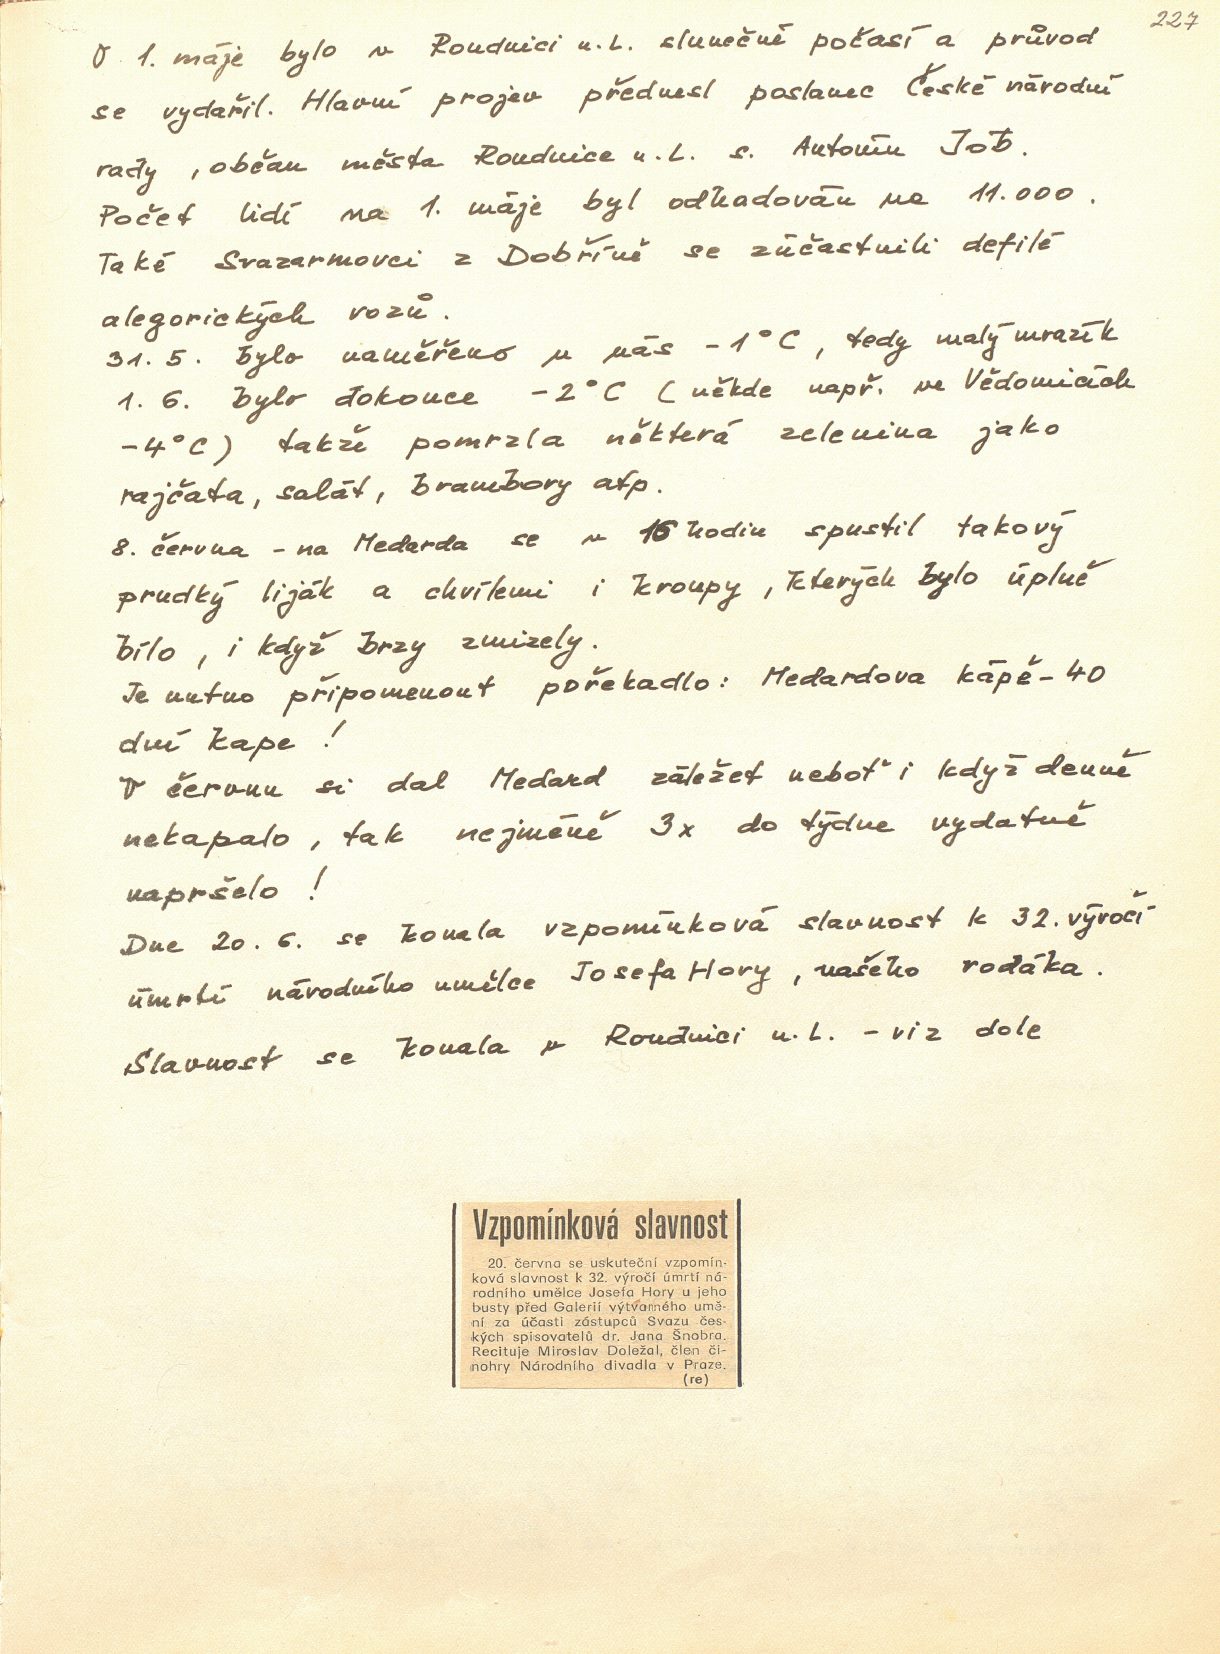 227
V 1. máje bylo v Roudnici n.L. slunečné počasí a průvod
se vydařil. Hlavní projev přednesl poslanec České národní
rady, občan města Roudnice n.L. s. Antonín Job.
Počet lidí na 1. máje byl odhadován na 11.000.
Také Svazarmovci z Dobříně se zúčastnili defilé
alegorických vozů.
31. 5. bylo naměřeno u nás -1°C, tedy malý mrazík
1. 6. bylo dokonce -2°C (někde např. ve Vědomicích
-4°C) takže pomrzla některá zelenina jako
rajčata, salát, brambory atp.
8. června - na Medarda se v 16 hodin spustil takový
prudký liják a chvílemi i kroupy, kterých bylo úplně
bílo, i když brzy zmizely.
Je nutno připomenout pořekadlo: Medardova kápě - 40
dní kape!
V červnu si dal Medard záležet neboť i když denně
nekapalo, tak nejméně 3x do týdne vydatně
napršelo!
Dne 20. 6. se konala vzpomínková slavnost k 32. výročí
úmrtí národního umělce Josefa Hory, našeho rodáka.
Slavnost se konala v Roudnici n.L. - viz dole
Vzpomínková slavnost
20. června se uskuteční vzpomín-
ková slavnost k 32. výročí úmrtí ná-
rodního umělce Josefa Hory u jeho
busty před Galerií výtvarného umě-
ní za účasti zástupců Svazu čes-
kých spisovatelů dr. Jana Šnobra.
Recituje Miroslav Doležal, člen či-
nohry Národního divadla v Praze.
(re)